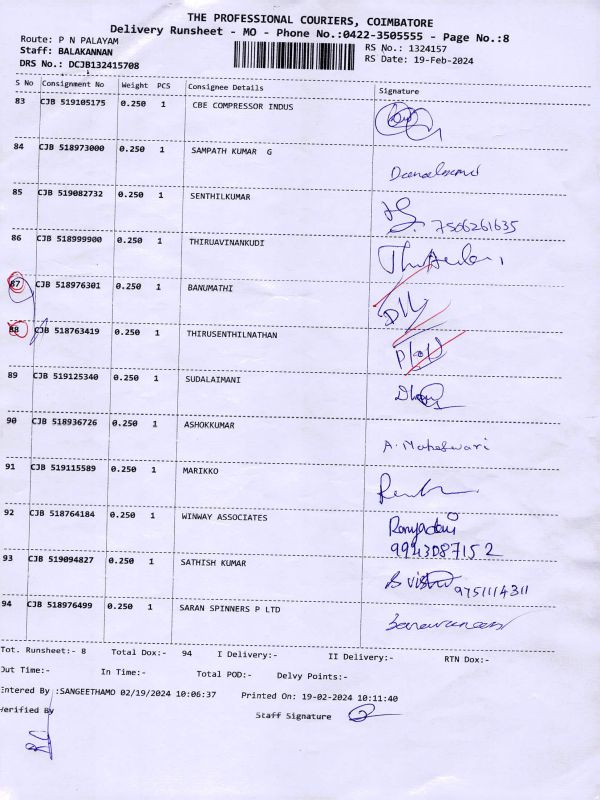 THE PROFESSIONAL COURIERS, COIMBATORE
Delivery Runsheet - MO - Phone No.:0422-3505555 - Page No.:8
Route: P N PALAYAM
RS No.: 1324157
Staff: BALAKANNAN
RS Date: 19-Feb-2024
DRS No.: DCJB132415708
S No Consignment No Weight PCS Consignee Details Signature
83 CJB 519105175 0.250 1 CBE COMPRESSOR INDUS
84 CJB 518973000 0.250 1 SAMPATH KUMAR G
85 CJB 519082732 0.250 1 SENTHILKUMAR
7506261635
86 CJB 518999900 0.250 1 THIRUAVINANKUDI
87 CJB 518976301 0.250 1 BANUMATHI
88 CJB 518763419 0.250 1 THIRUSENTHILNATHAN
89 CJB 519125340 0.250 1 SUDALAIMANI
90 CJB 518936726 0.250 1 ASHOKKUMAR
A. Maheswari
91 CJB 519115589 0.250 1 MARIKKO
92 CJB 518764184 0.250 1 WINWAY ASSOCIATES
9943087152
93 CJB 519094827 0.250 1 SATHISH KUMAR
9751114311
94 CJB 518976499 0.250 1 SARAN SPINNERS P LTD
Tot. Runsheet:- 8 Total Dox:- 94 I Delivery:- II Delivery:- RTN Dox:-
Out Time:- In Time:- Total POD:- Delvy Points:-
Entered By :SANGEETHAMO 02/19/2024 10:06:37 Printed On: 19-02-2024 10:11:40
Verified By
Staff Signature